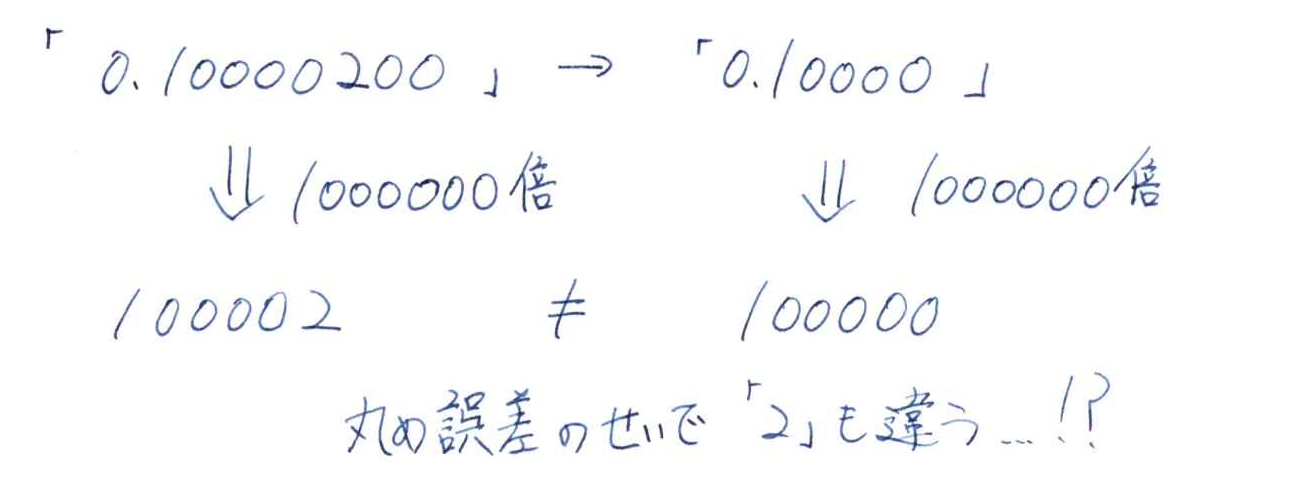 「0.10000200」→「0.10000」
⇓1000000倍 ⇓1000000倍
100002 ≠ 100000
丸め誤差のせいで「2」も違う…!?